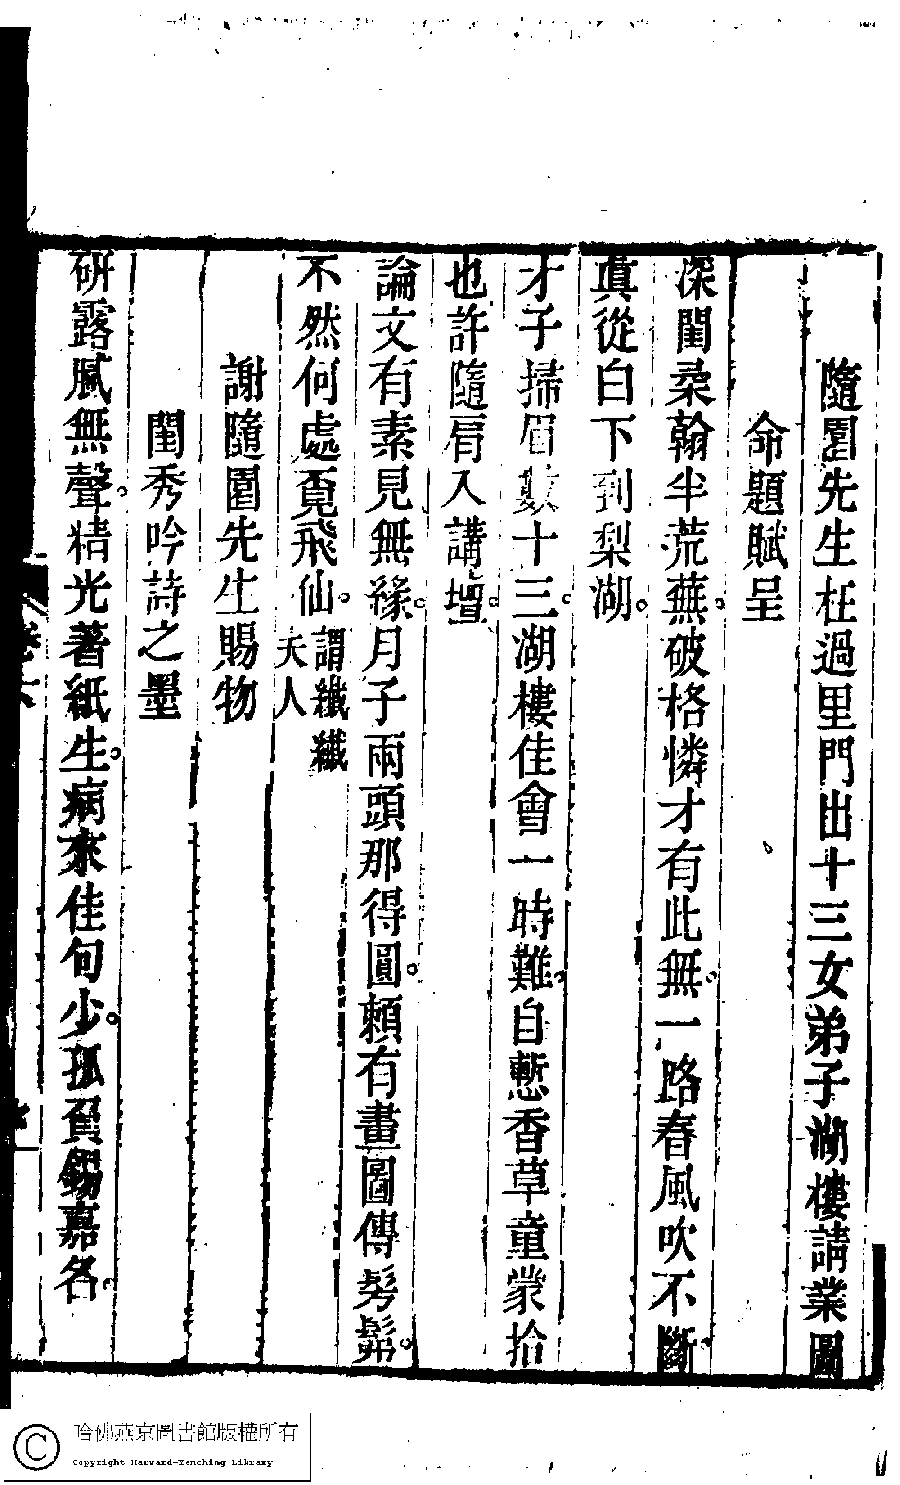 隨園先生枉過里門出十三女弟子湖樓請業圖
命題賦呈
深閨柔翰半荒蕪。破格憐才有此無。一路春風吹不斷
真從白下到梨湖。
才子掃眉數十三。湖樓佳會一時難。自慙香草童蒙拾
也許隨肩入講壇。
論文有素見無緣。月子兩頭那得圓。賴有畫圖傳髣髴。
不然何處覓飛仙。謂纖纖
天人
謝隨園先生賜物
閨秀吟詩之墨
研露膩無聲。精光著紙生。病來佳句少。孤負錫嘉名。
卷六
哈佛燕京圖書館版權所有
Copyright Harvard-Yenching Library